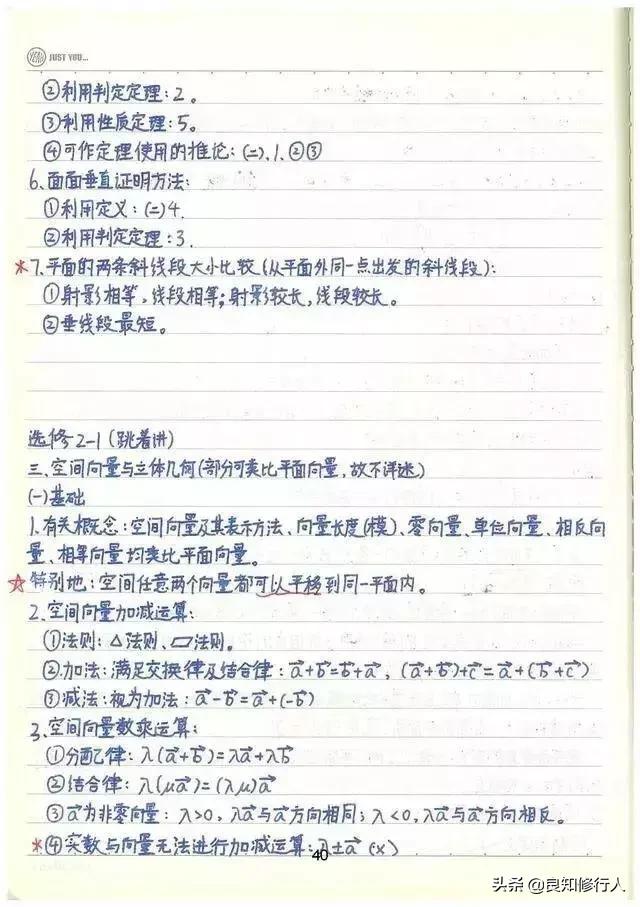 YEAH JUST YOU...
②利用判定定理:2。
③利用性质定理:5。
④可作定理使用的推论:(二).1.②③
6.面面垂直证明方法:
①利用定义:(二)4.
②利用判定定理:3.
*7.平面的两条斜线段大小比较(从平面外同一点出发的斜线段):
①射影相等,线段相等;射影较长,线段较长。
②垂线段最短。
选修2-1(跳着讲)
三、空间向量与立体几何(部分可类比平面向量,故不详述)
(一)基础
1.有关概念:空间向量及其表示方法、向量长度(模)、零向量、单位向量、相反向
量、相等向量均类比平面向量。
☆特别地:空间任意两个向量都可以平移到同一平面内。
2.空间向量加减运算:
①法则:△法则、▱法则。
②加法:满足交换律及结合律:a⃗+b⃗=b⃗+a⃗,(a⃗+b⃗)+c⃗=a⃗+(b⃗+c⃗)
③减法:视为加法:a⃗-b⃗=a⃗+(-b⃗)
3.空间向量数乘运算:
①分配律:λ(a⃗+b⃗)=λa⃗+λb⃗
②结合律:λ(μa⃗)=(λμ)a⃗
③a⃗为非零向量:λ>0,λa⃗与a⃗方向相同;λ<0,λa⃗与a⃗方向相反。
*④实数与向量无法进行加减运算:λ±a⃗(×)
40
头条@良知修行人